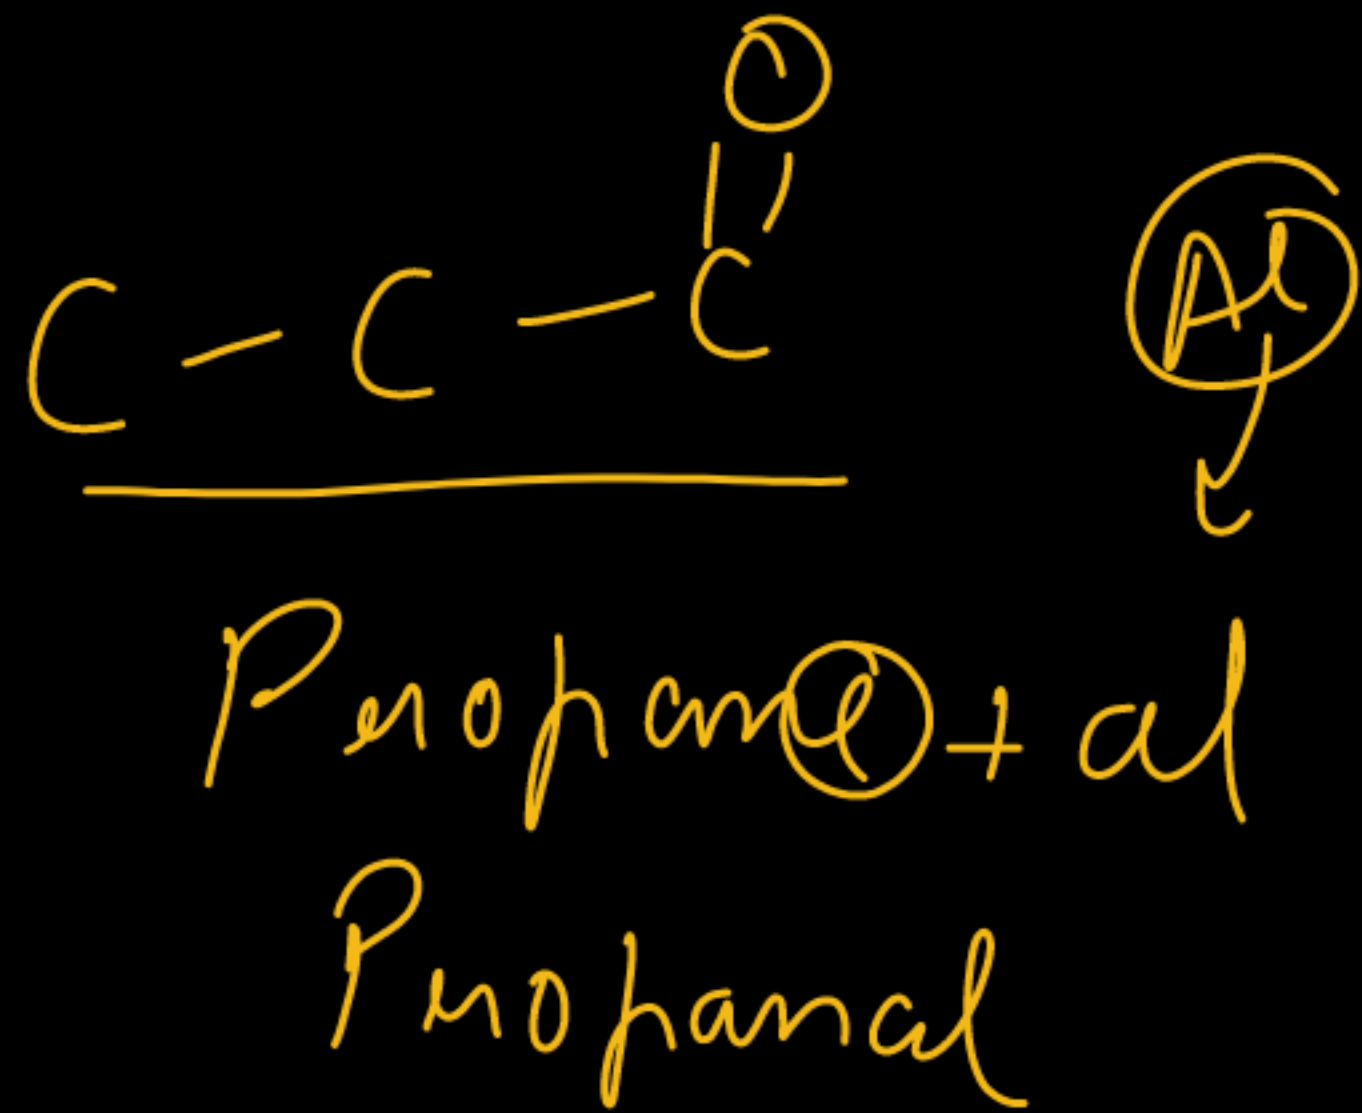 O
C - C - C
Al
Propane + al
Propanal